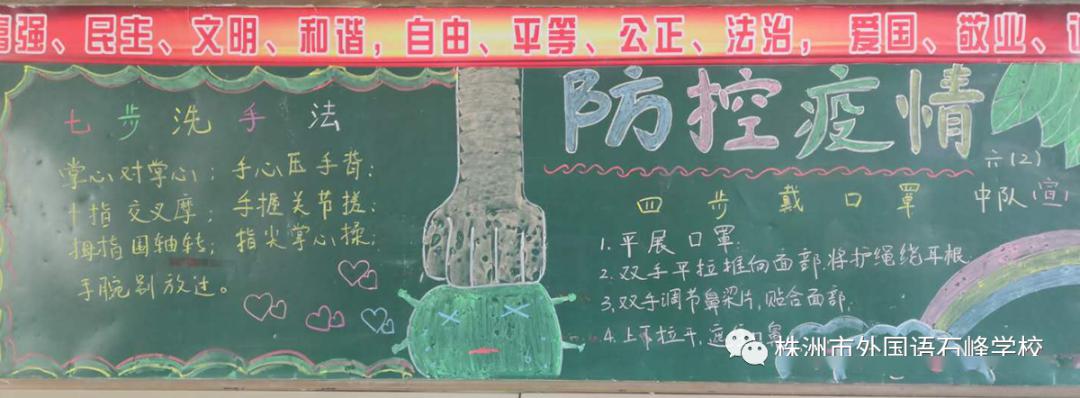 富强、民主、文明、和谐，自由、平等、公正、法治，爱国、敬业、
七步洗手法
掌心对掌心；手心压手背；
十指交叉摩；手握关节搓；
拇指围轴转；指尖掌心揉；
手腕别放过。
防控疫情
六(2)
中队(宣)
四步戴口罩
1.平展口罩.
2.双手平拉推向面部.将护绳绕耳根.
3.双手调节鼻梁片,贴合面部.
4.上下拉开,遮住口鼻
株洲市外国语石峰学校